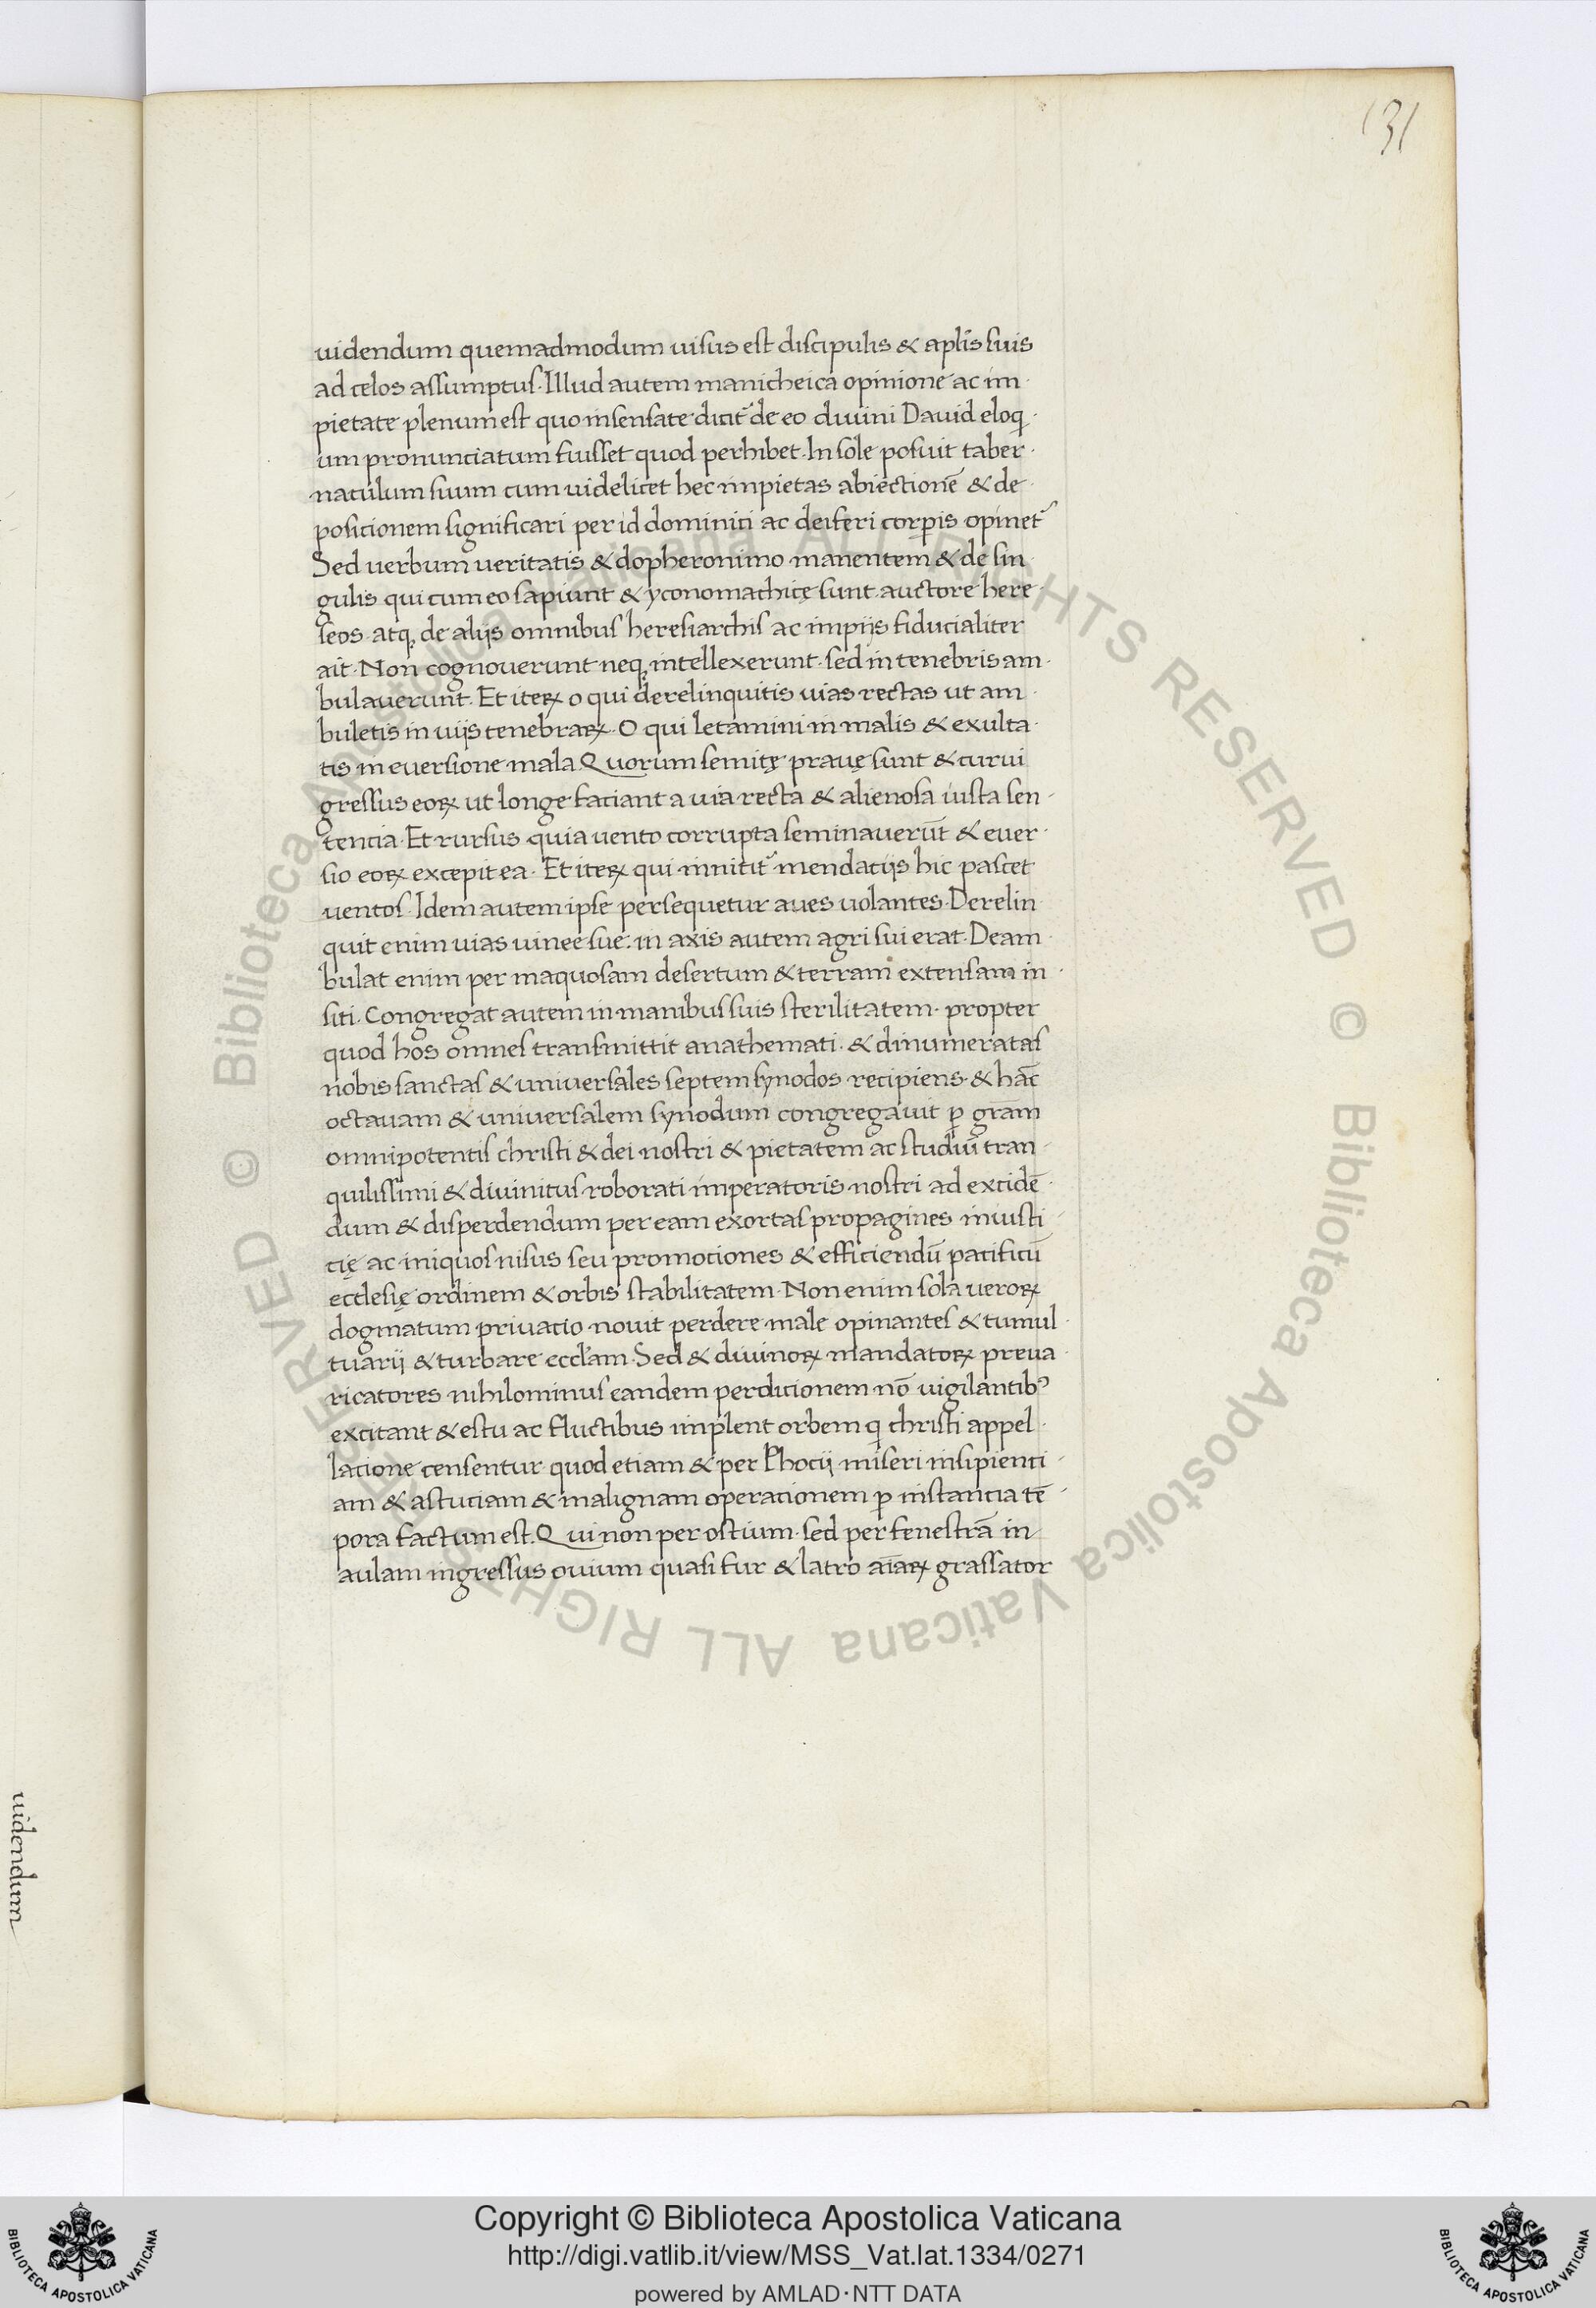 131
uidendum quemadmodum uisus est discipulis & apl̄is suis
ad celos assumptus · Illud autem manicheica opinione ac im
pietate plenum est quo insensate dicit᷑ de eo diuini Dauid eloq
um pronunciatum fuisset quod perhibet · In sole posuit taber
naculum suum cum uidelicet hec impietas abiectionē & de
posicionem significari per id dominici ac deiferi corꝑis opinet᷑
Sed uerbum ueritatis & dopheronimo manentem & de sin
gulis qui cum eo sapiunt & yconomachicę sunt auctore here
seos · atqꝫ de alijs omnibus heresiarchis ac impijs fiducialiter
ait · Non cognouerunt neqꝫ intellexerunt · sed in tenebris am
bulauerunt · Et iteꝝ o qui derelinquitis uias rectas ut am
buletis in uijs tenebraꝝ · O qui letamini in malis & exulta
tis in euersione mala Quorum semitę prauę sunt & curui
gressus eoꝝ ut longe faciant a uia recta & alienosa iusta sen
tencia · Et rursus quia uento corrupta seminauerūt & euer
sio eoꝝ excepit ea · Et iteꝝ qui innitit᷑ mendacijs hic pascet
uentos · Idem autem ipse persequetur aues uolantes · Derelin
quit enim uias uinee sue : in axis autem agri sui erat · Deam
bulat enim per maquosam desertum & terram extensam in
siti · Congregat autem in manibus suis sterilitatem · propter
quod hos omnes transmittit anathemati · & dinumeratas
nobis sanctas & uniuersales septem synodos recipiens · & hāc
octauam & uniuersalem synodum congregauit ꝑ gram̄
omnipotentis christi & dei nostri & pietatem ac studiū tran
quilissimi & diuinitus roborati imperatoris nostri ad excidē
dum & disperdendum per eam exortas propagines iniusti
cię ac iniquos nisus seu promociones & efficiendū pacificū
ecclesię ordinem & orbis stabilitatem · Non enim sola ueroꝝ
dogmatum priuacio nouit perdere male opinantes & tumul
tuarij & turbare eccl̄am · Sed & diuinoꝝ mandatoꝝ preua
ricatores nihilominus eandem perdicionem nō uigilantibꝰ
excitant & estu ac fluctibus implent orbem q christi appel
lacione censentur quod etiam & per Phocij miseri insipienci
am & astuciam & malignam operacionem ꝑ instancia tē
pora factum est. Qui non per ostium · sed per fenestrā in
aulam ingressus ouium quasi fur & latro aīaꝝ grassator
uidendum
© Biblioteca Apostolica Vaticana ALL RIGHTS RESERVED © Biblioteca Apostolica Vaticana ALL RIGHTS RESERVED
Copyright © Biblioteca Apostolica Vaticana
http://digi.vatlib.it/view/MSS_Vat.lat.1334/0271
powered by AMLAD·NTT DATA
BIBLIOTECA APOSTOLICA VATICANA
BIBLIOTECA APOSTOLICA VATICANA